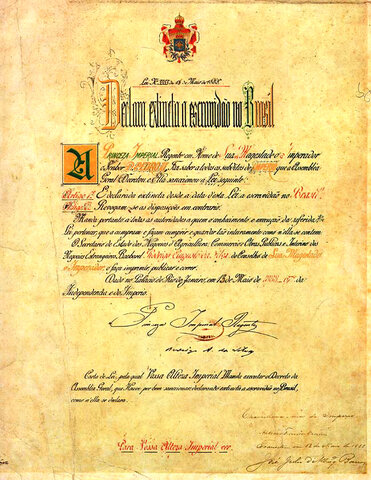 Lei Nº 3353 de 13 de Maio de 1888.
Declara extincta a escravidão no Brasil.
A PRINCEZA IMPERIAL Regente em Nome de Sua Magestade o Imperador
o Senhor D. PEDRO II Faz saber a todos os subditos do Imperio que a Assembléa
Geral Decretou e Ella sanccionou a Lei seguinte:
Artigo 1º É declarada extincta desde a data d'esta Lei a escravidão no Brazil.
Artigo 2º Revogam-se as disposições em contrario.
Manda portanto a todas as autoridades a quem o conhecimento e execução da referida
Lei pertencer, que a cumpram e façam cumprir e guardar tão inteiramente como n'ella se contem
O Secretario de Estado dos Negocios d'Agricultura, Commercio e Obras Publicas e Interino dos
Negocios Estrangeiros, Bacharel Rodrigo Augusto da Silva do Conselho de Sua Magestade
o Imperador, o faça imprimir, publicar e correr.
Dado no Palacio do Rio de Janeiro, em 13 de Maio de 1888, 67º da
Independencia e do Imperio.
Princeza Imperial Regente
Rodrigo A. da Silva
Carta de Lei, pela qual Vossa Alteza Imperial Manda executar o Decreto da
Assembléa Geral, que Houve por bem sanccionar declarando extincta a escravidão no Brazil,
como n'ella se declara.
Para Vossa Alteza Imperial ver.
Chancellaria-mór do Imperio